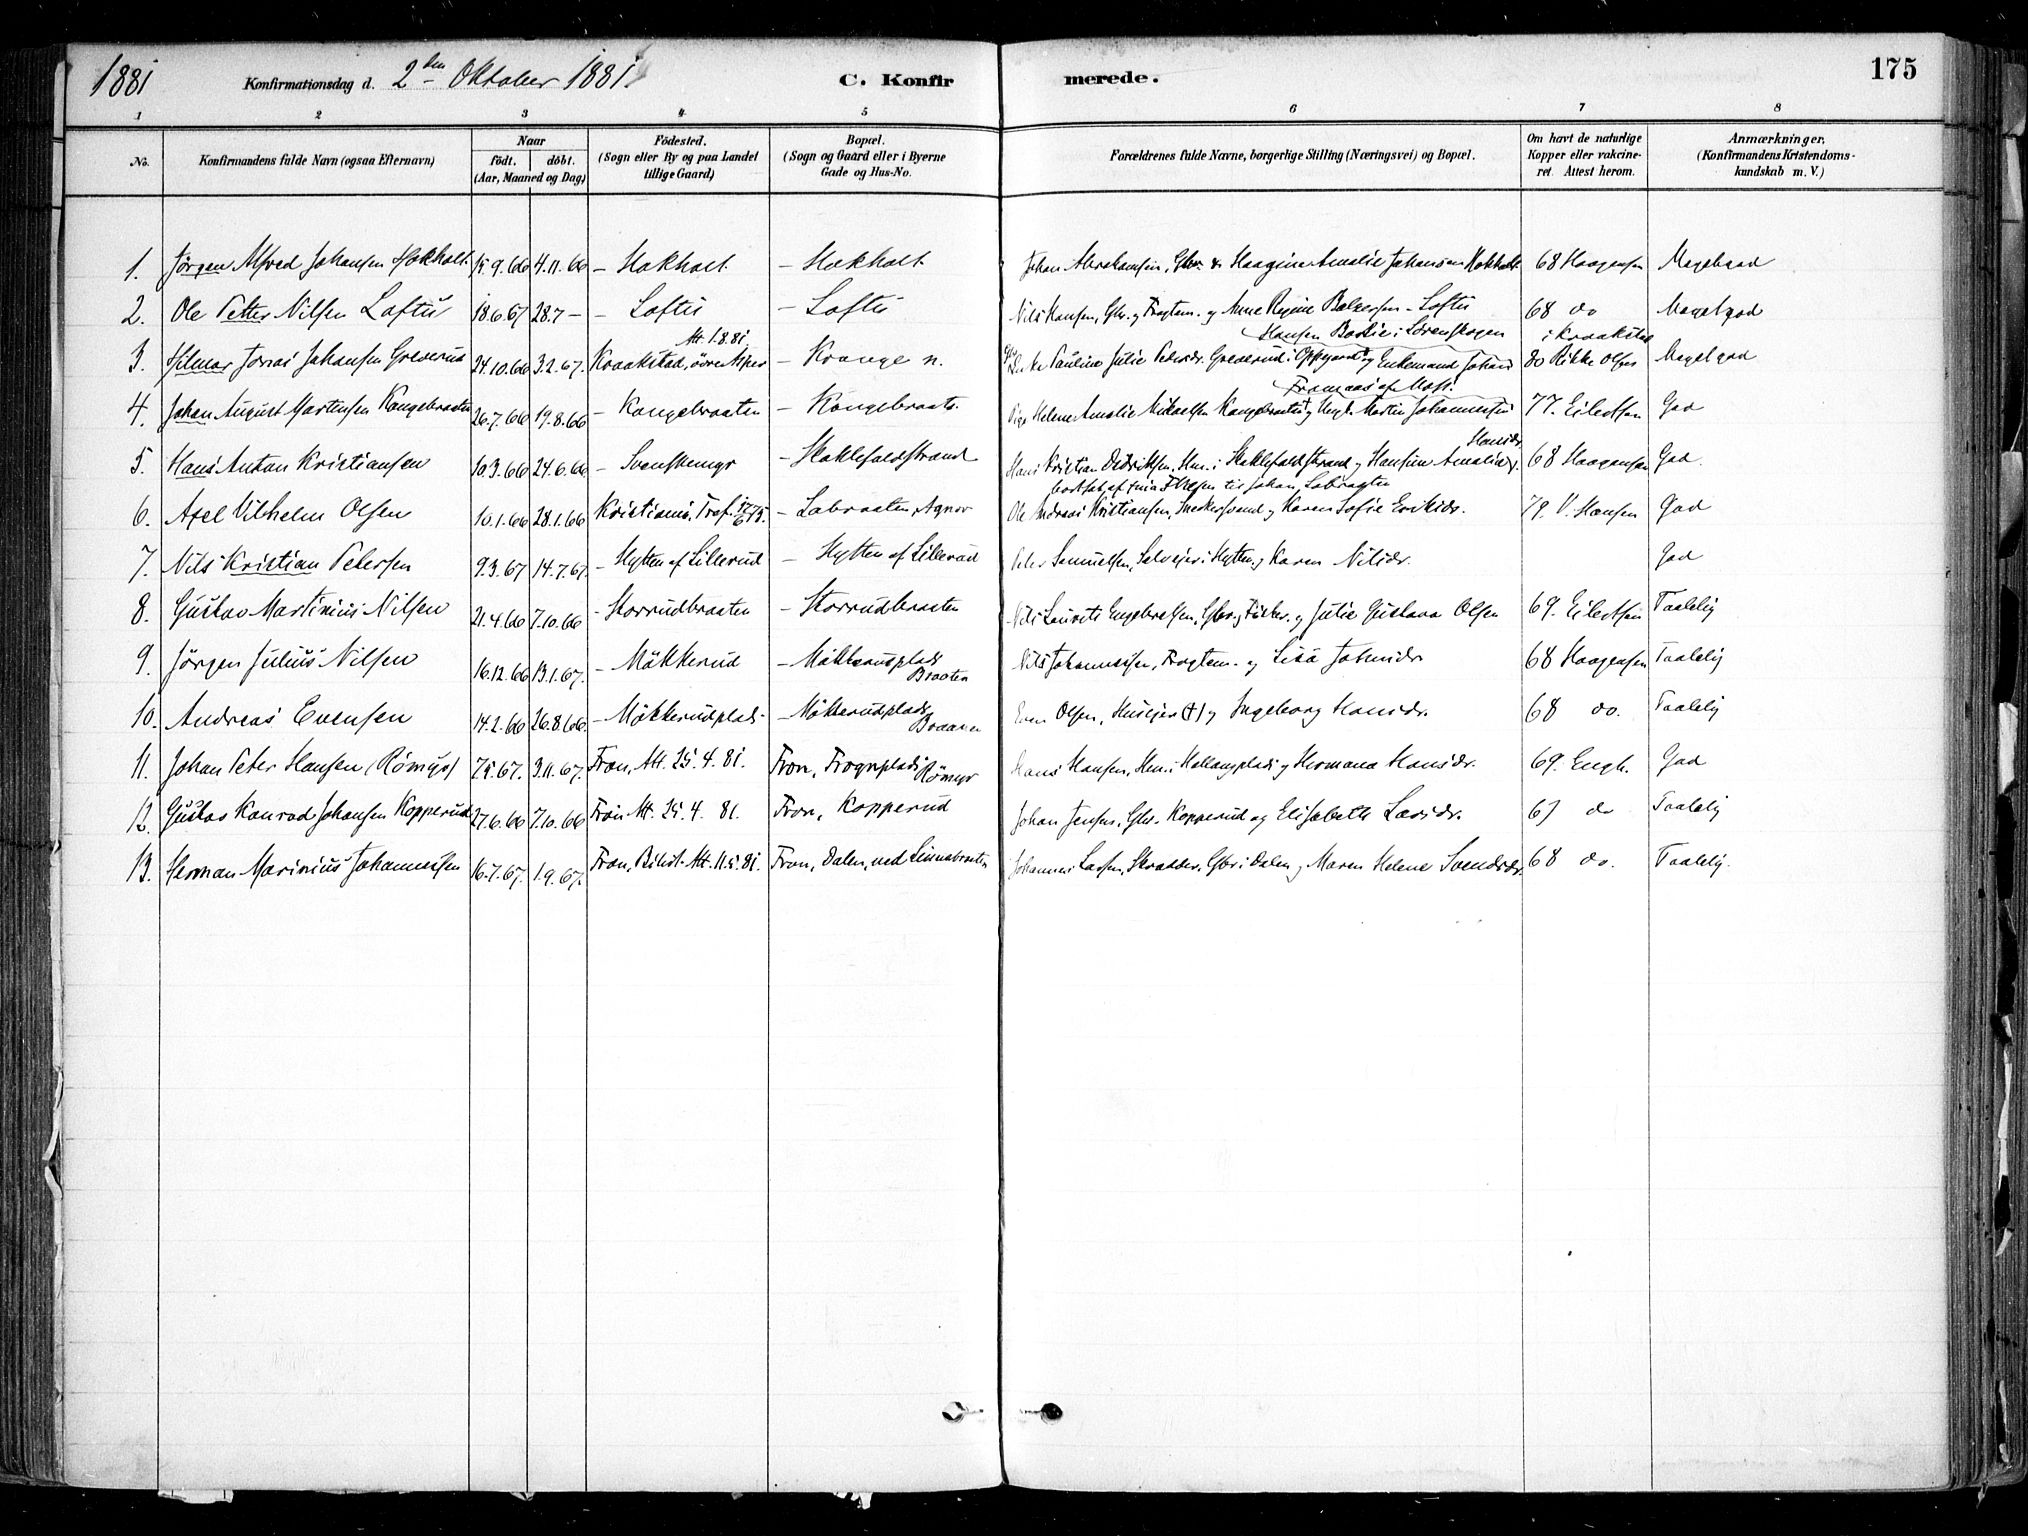 1881 Konfirmationsdag d. 2den Oktober 1881. C. Konfirmerede. 175
1 2 3 4 5 6 7 8
No. Konfirmandens fulde Navn (ogsaa Efternavn) Naar födt. döbt. (Aar, Maaned og Dag) Födested. (Sogn eller By og paa Landet tillige Gaard) Bopæl. (Sogn og Gaard eller i Byerne Gade og Hus-No. Forældrenes fulde Navne, borgerlige Stilling (Næringsvei) og Bopæl. Om havt de naturlige Kopper eller vakcineret. Attest herom. Anmærkninger. (Konfirmandens Kristendomskundskab m. V.)
1. Jörgen Alfred Johansen Hokholt. 15.9.66 4.11.66 – Hokholt. – Hokholt. Johan Abrahamsen, Gbr. & Haagine Amalie Johansen Hokholt 68 Haagensen Megetgod
2. Ole Petter Nilsen Loftus 18.6.67 28.7 – – Loftus – Loftus Nils Hansen, Gbr. og Fragtem. og Anne Regine Balzersen – Loftus 68 do Megetgod
Att. 1.8.81. Hansen Bootie i Sörenskogen i Kraakstad
3. Hilmar Jonas Johansen Greverud 24.10.66 3.2.67. Kraakstad, övre – Krange n. Enke Pauline Julie Pedersdr. Greverud i Oppegaard og Enkemand Johan 80 Rikke Olsen Megetgod
af Moss.
4. Johan August Martinsen Kongebraaten 26.7.66 19.8.66 – Kongebraaten – Kongebraate. Pige Helene Amalie Mikaelsen Kongebraaten og Ungk. Martin Johannessen 77. Eilertsen God
Hansdr
5. Hans Anton Kristiansen 10.3.66 24.6.66 – Svenskemyr – Skoklefaldstrand Hans Kristian Didriksen, Hm. i Skoklefaldstrand og Hansine Amalie 68 Haagensen God.
bortsat af til Johan, Labraaten
6. Axel Vilhelm Olsen 10.1.66 28.1.66 Kristiania, Tref. – Labraaten, Agnor Ole Andreas Kristiansen, Snekkersvend og Karen Sofie Eriksdr. 79. V. Hansen God
7. Nils Kristian Petersen 9.3.67 14.7.67. – Hytten af Lillerud – Hytten af Lillerud Peter Samuelsen, Selveier i Hytten og Karen Nilsdr. God
8. Gustav Martinius Nilsen 21.4.66 7.10.66 – Storrudbraaten – Storrudbraaten Nils Laurits Engebretsen, Gbr. og Fisker. og Julie Gustava Olsen 69. Eilertsen Taalelig
9. Jörgen Julius Nilsen 16.12.66 13.1.67. – Mökkerud – Mökkerudplads Braaten Nils Johannessen, Fragtem. og Lisa Johnsdr. 68 Haagensen Taalelig
10. Andreas Evensen 14.2.66 26.8.66. – Mökkerudplads. – Mökkerudplads Braaten Even Olsen, Huseier (†) og Ingeborg Hansdr. 68 do. Taalelig
11. Johan Peter Hansen (Römyr) 7.5.67. 3.11.67. Fron, Att. 25.4.81. Fron, Frognplads Römyr Hans Hansen, Hm. i Hallangplads og Hermana Hansdr. 69. Engh. God
12. Gustav Konrad Johansen Kopperud 27.6.66 7.10.66 Fron Att. 25.4.81. Fron, Kopperud Johan Jensen, Gbr. Kopperud og Elisabeth Larsdr. 67 do Taalelig
13. Herman Marinius Johannessen 16.7.67. 1.9.67. Fron, Att. 11.5.81. Fron, Dalen, ned Linnebraaten Johannes Larsen, Skrædder, Gbr. i Dalen og Maren Helene Svendsdr. 68 do. Taalelig.